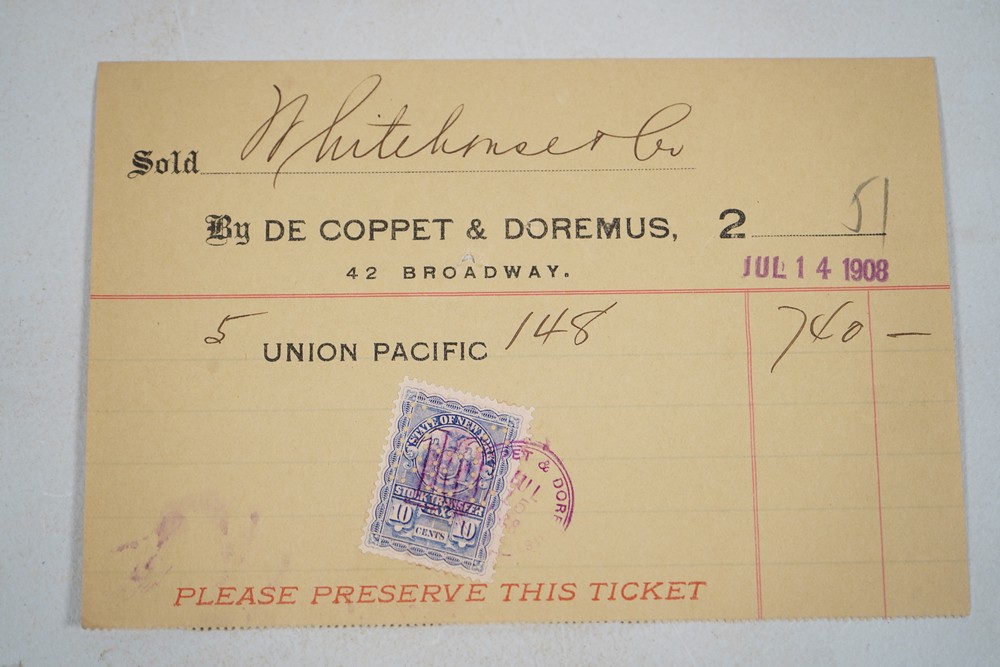 Sold Whitehouse & Co
By DE COPPET & DOREMUS, 2 51
42 BROADWAY.
JUL 14 1908
5 UNION PACIFIC 148 740 —
STATE OF NEW YORK
STOCK TRANSFER
TAX
10 CENTS 10
PET & DORE
JUL
PLEASE PRESERVE THIS TICKET